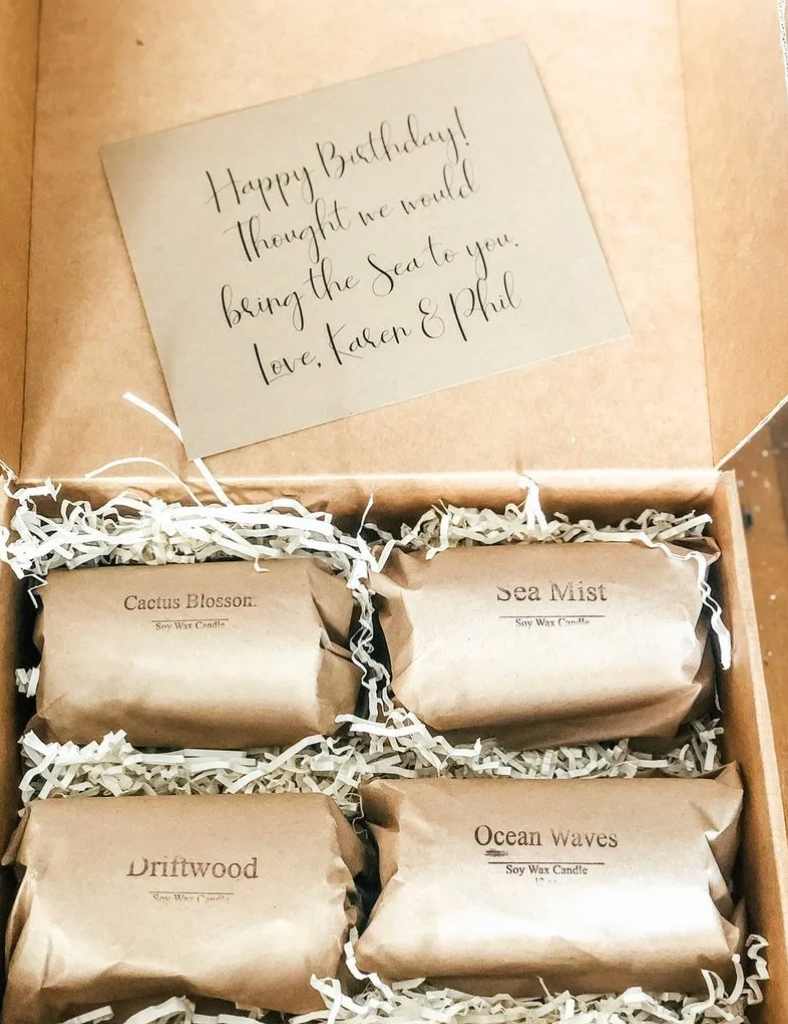 Happy Birthday!
Thought we would
bring the Sea to you.
Love, Karen & Phil
Cactus Blossom
Soy Wax Candle
Sea Mist
Soy Wax Candle
Driftwood
Soy Wax Candle
Ocean Waves
Soy Wax Candle